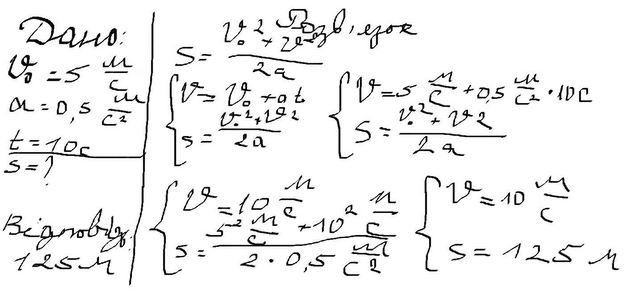 Дано:
V₀ = 5 м/с
a = 0,5 м/с²
t = 10с
s = ?
Відповідь:
125 м
Розв'язок
S = (V₀² + V²)/2a
{ V = V₀ + at
s = (V₀² + V²)/2a
{ V = 5 м/с + 0,5 м/с² · 10с
S = (V₀² + V²)/2a
{ V = 10 м/с
s = (5² м/с + 10² м/с)/(2 · 0,5 м/с²)
{ V = 10 м/с
s = 125 м